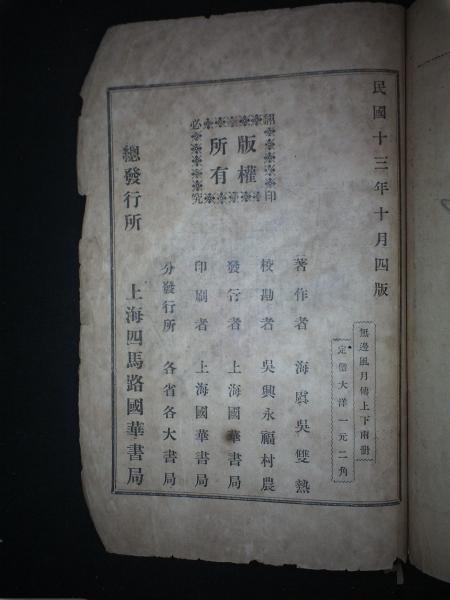 民國十三年十月四版
無邊風月傳上下兩冊
定價大洋一元二角
著作者　海虞吳雙熱
校勘者　吳興永福村農
發行者　上海國華書局
印刷者　上海國華書局
分發行所　各省各大書局
翻印必究
版權所有
總發行所　上海四馬路國華書局